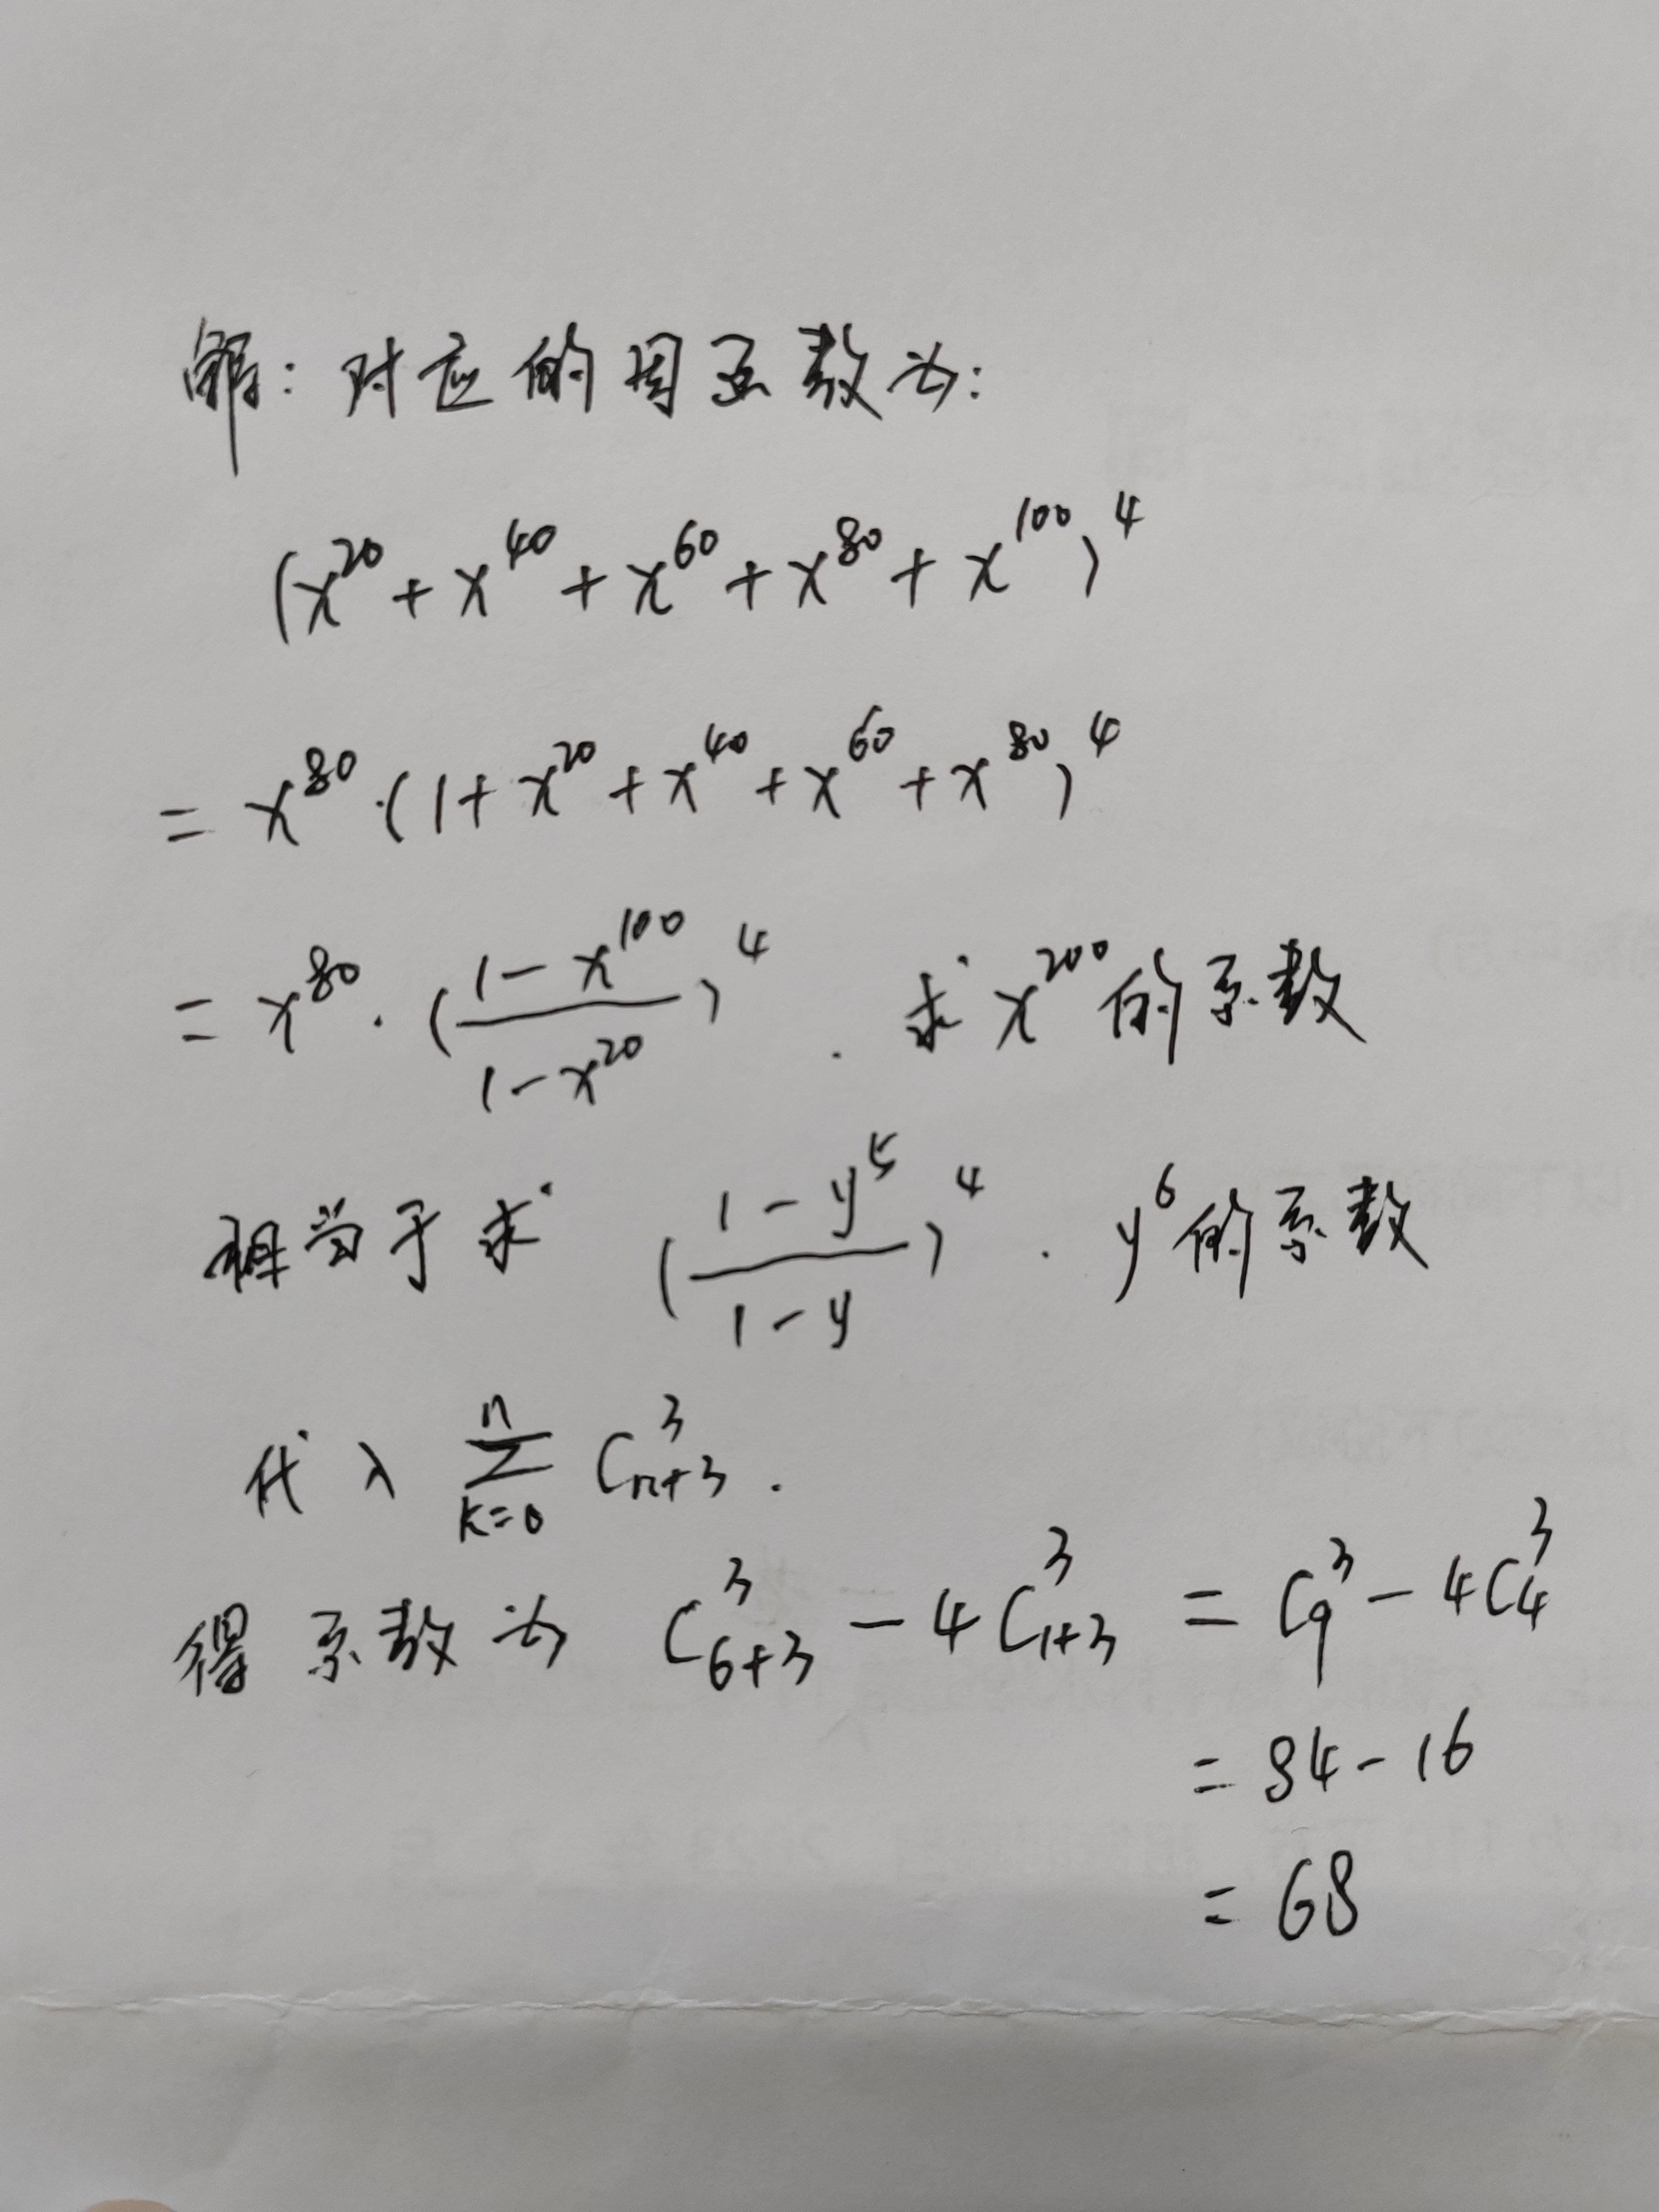 解：对应的母函数为：
(x^20 + x^40 + x^60 + x^80 + x^100)^4
= x^80 · (1 + x^20 + x^40 + x^60 + x^80)^4
= x^80 · ((1 - x^100)/(1 - x^20))^4 . 求 x^200 的系数
相当于求 ((1 - y^5)/(1 - y))^4 . y^6 的系数
代入 ∑_{k=0}^{n} C_{n+3}^3 .
得系数为 C_{6+3}^3 - 4C_{1+3}^3 = C_9^3 - 4C_4^3
= 84 - 16
= 68